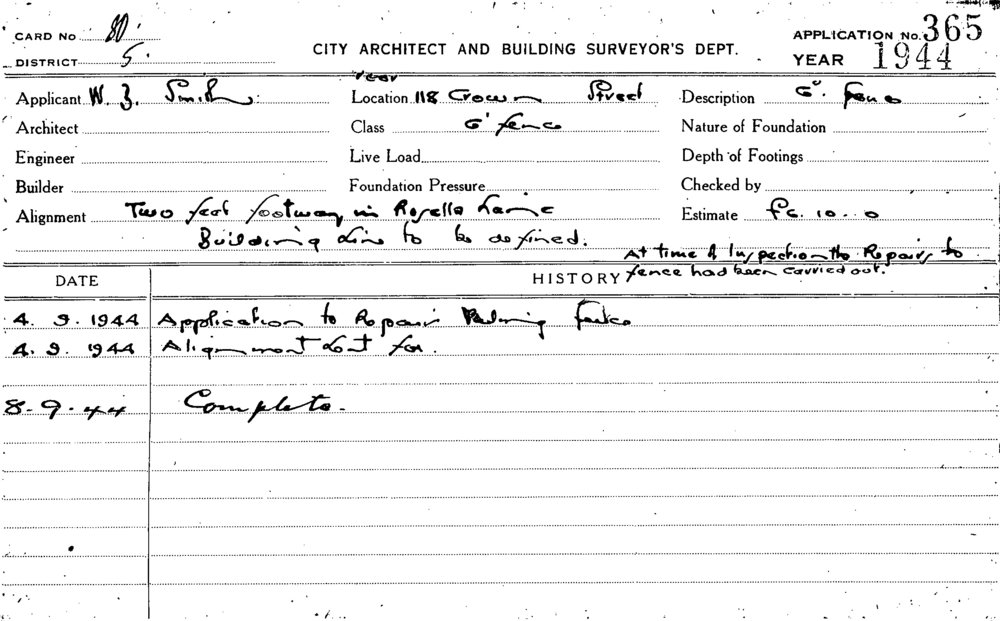 CARD No 80.
DISTRICT 5.
CITY ARCHITECT AND BUILDING SURVEYOR'S DEPT.
APPLICATION No. 365
YEAR 1944
Applicant W. J. Smith
rear
Location 118 Crown Street
Description G. fence
Architect
Class G' fence
Nature of Foundation
Engineer
Live Load
Depth of Footings
Builder
Foundation Pressure
Checked by
Alignment Two feet footway in Rosella Lane
Estimate 10..0
Building Line to be defined.
At time of Inspection the Repairs to
fence had been carried out.
DATE
HISTORY
4. 9. 1944 Application to Repair fence
4. 9. 1944 Alignment for.
8-9-44 Complete.